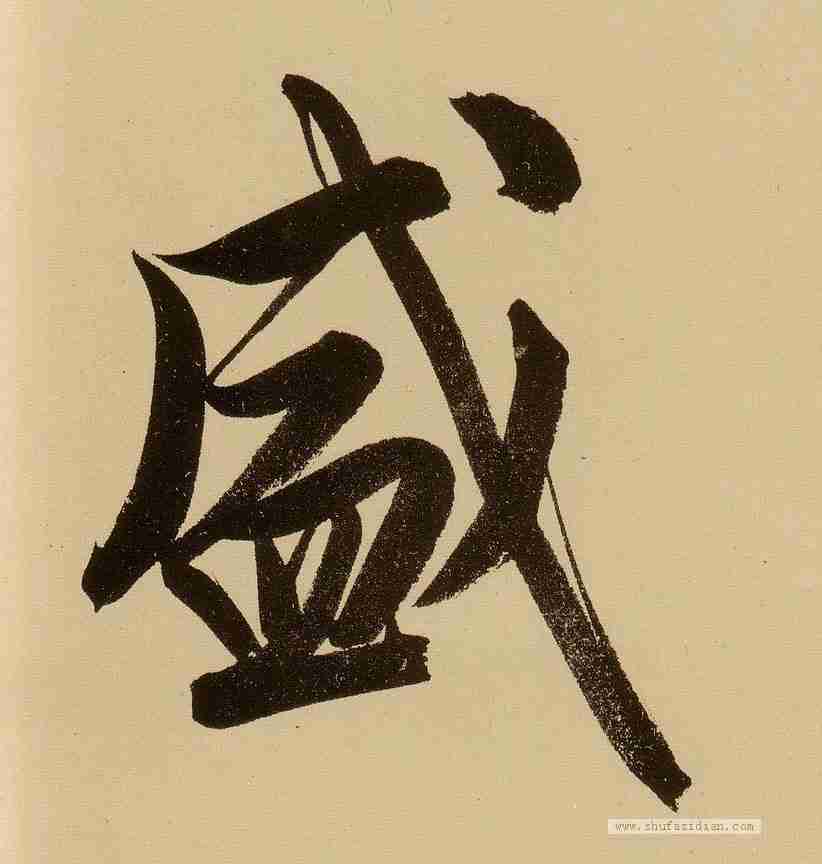 盛
www.shufazidian.com